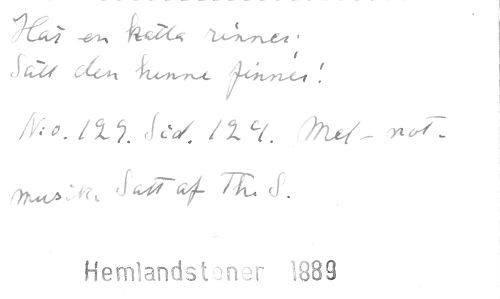 Här en källa rinner.
Säll den henne finner!
N:o. 129. Sid. 129. Mel-not-
musik. Satt af Th. S.
Hemlandstoner 1889